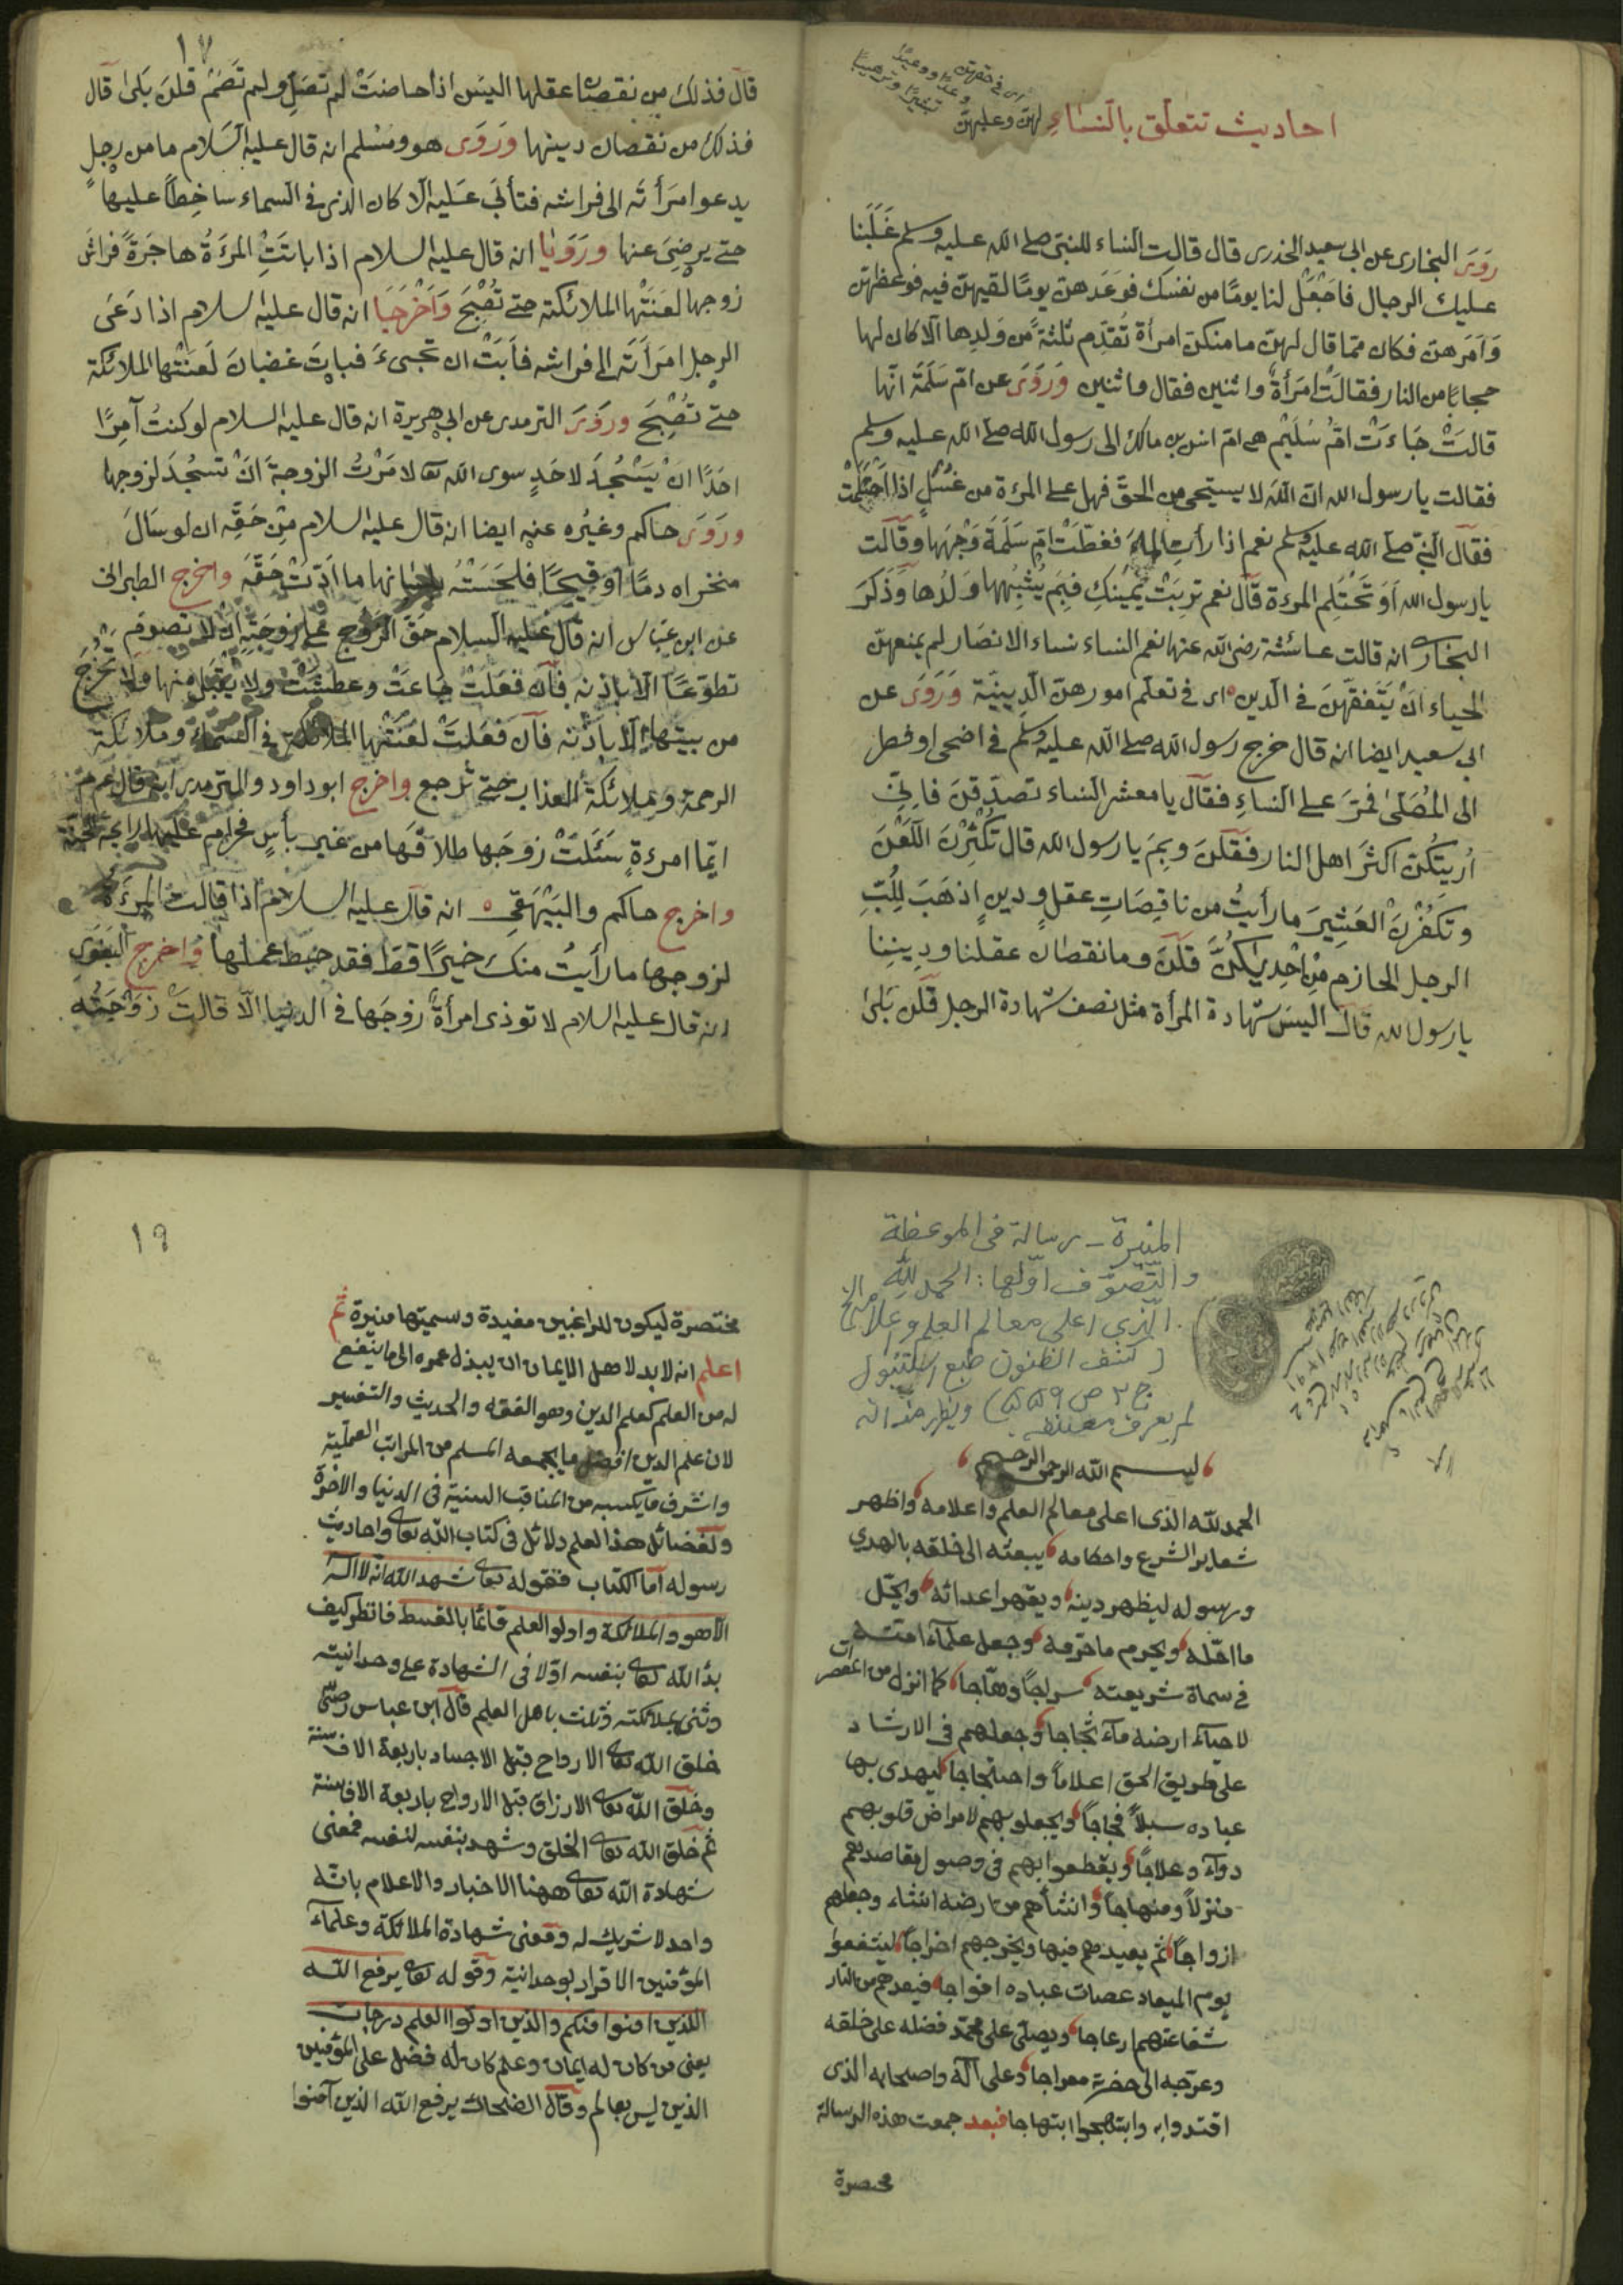 احاديث تتعلق بالنساء لهن وعليهن
رَوَى البخارى عن ابى سعيد الخدرى قال قالت النساء للنبى صلى الله عليه وسلم غَلَبَنا
عليك الرجال فاجْعَلْ لنا يومًا من نفسك فوَعَدَهن يومًا لقيهن فيه فوعظهن
وَاَمَرهن فكان مما قال لهن ما منكن امرأة تُقدِّم ثلثة من وَلدِها الا كان لها
حجابًا من النار فقالَتْ امرَأةٌ واثنين فقال واثنين وَرَوَى عن ام سَلَمَة انها
قالَتْ جَاءَتْ امُّ سُلَيْم هى ام انس بن مالك الى رسول الله صلى الله عليه وسلم
فقالت يا رسول الله ان الله لا يستحيى من الحق فهل على المرءة من غُسْلٍ اذا احْتَلَمَتْ
فقال النبى صلى الله عليه وسلم نعم اذا رأتِ الماءَ فغطّتْ ام سَلَمَةَ وَجْهَهَا وقالت
يا رسول الله اَوَتَحْتَلِم المرءة قال نعم تَرِبَتْ يَمِينُكِ فبِمَ يُشْبِهُهَا وَلَدُها وَذَكَرَ
البخارى انه قالت عائشة رضى الله عنها نعم النساء نساء الانصَار لم يمنعهن
الحياء اَنْ يَتَفقّهنَ فى الدين اى فى تعلم امورهن الدينية وَرَوَى عن
ابى سعيد ايضا انه قال خرج رسول الله صلى الله عليه وسلم فى اضحى او فطر
الى المُصَلَّى فمَرّ على النساءِ فقال يا معشر النساء تصدّقن فاِنّى
اُرِيتُكُنّ اكثرَ اهل النار فقلنَ وبِمَ يا رسول الله قال تُكْثِرْنَ اللَّعْنَ
وتَكْفُرْنَ العَشِيرَ ما رأيتُ من ناقِصَاتِ عقلٍ ودينٍ اذهَبَ لِلُبِّ
الرجل الحازم مِنْ اِحْديكنَّ قلن وما نقصان عقلنا ودِينِنا
يا رسول الله قال اليسَ شهادة المرأة مثل نصف شهادة الرجل قلن بَلىٰ
١٧
قال فذلك من نقصان عقلها اليسَ اذا حاضَتْ لم تصَلِّ ولم تَصُمْ قلن بَلىٰ قال
فذلك من نقصان دينها وَرَوَى هو ومُسْلم انه قال عليه السَلام ما من رجلٍ
يدعو امرَأته الى فراشه فتأبَى عَليه الا كان الذى فى السماء ساخِطًا عليها
حتى يرضىَ عنها ورَوَيَا انه قال عليه السلام اذا باتَتِ المرَءَةُ هاجَرَةً فراشَ
زوجها لعَنَتْها الملائكة حتى تُصْبِحَ وَاَخْرَجَا انه قال عليه السلام اذا دَعَى
الرجل امرَاَتَه الى فراشه فاَبَتْ ان تجىءَ فباتَ غضبانَ لَعَنَتْها الملائكة
حتى تُصْبِحَ وروَى الترمدى عن ابى هريرة انه قال عليه السلام لو كنتُ آمِرًا
احَدًا انْ يَسْجُدَ لاحَدٍ سوى الله تعا لامَرْتُ الزوجةَ انْ تسجُدَ لزوجها
وروَى حاكم وغيْرُه عنه ايضا انه قال عليه السلام مِن حَقِّه ان لو سَالَ
منخراه دمًا او قيحًا فلحَسَتْهُ بلسانها ما ادّتْ حَقّهُ واخرج الطبرانى
عن ابن عبّاس انه قال عليه السلام حَقّ الزوج على زوجَتِه ان لا تصومَ
تطوّعًا الا باذنه فان فعَلَتْ جَاعَتْ وعطشَتْ ولا يُقبَل منها ولا تخرُجَ
من بيتها الا باذنه فان فَعَلتْ لعَنَتْها الملائكة فى السماء وملائكة
الرحمة وملائكة العذاب حتى ترجع واخرج ابو داود والترمدى انه قال عم
ايّما امرءةٍ سَئَلَتْ زوجَها طلاقَها من غير بأسٍ فحرام عليها رايحة الجنة
واخرج حاكم والبَيْهَقِى انه قال عليه السلام اذا قالت المرَءَة
لزوجها ما رأيتُ منك خيرًا قطّ فقد حبط عملها واخرج البَغَوِى
انه قال عليه السلام لا توذى امرأةٌ زوجَها فى الدنيا الّا قالتْ زوْجَتُه
المنيرة ـ رسالة فى الموعظة
والتصوف اولها: الحمد لله
الذي اعلى معالم العلم واعلامه الخ
(كشف الظنون طبع استنبول
لم يعرف مصنفه
بسم الله الرحمن الرحيم
الحمد لله الذى اعلى معالم العلم واعلامه واظهر
شعاير الشرع واحكامه يبعثه الى خلقه بالهدي
ورسوله ليظهر دينه ويقهر اعدائه ويحل
ما احله ويحرم ما حرمه وجعل علمآء امته
فى سماة شريعته سراجًا وهّاجا كما انزل من المعصرات
لاحيآء ارضه مآء ثجاجا وجعلهم فى الارشاد
على طريق الحق اعلامًا واحتجاجا ليهدى بها
عباده سبلًا فجاجًا ويجعلو بهم لامراض قلوبهم
دوآء وعلاجًا ويقطعوا بهم فى وصول مقاصدهم
منزلًا ومنهاجًا وانشأهم من ارضه انشاء وجعلهم
ازواجًا ثم يعيدهم فيها ويخرجهم اخراجًا ليشفعوا
يوم الميعاد عصات عباده افواجا فيبعدهم من النار
شفاعتهم ارعاجا ويصلى على محمد فضله على خلقه
وعرّجه الى حضرته معراجا وعلى آله واصحابه الذى
اقتدوا به وابتهجوا ابتهاجا فبعد جمعت هذه الرسالة
مختصرة
١٩
مختصرة ليكون للراغبين مفيدة وسميتها منيرة ثم
اعلم انه لابد لاهل الايمان ان يبذل عمره الى ما ينفع
له من العلم كعلم الدين وهو الفقه والحديث والتفسير
لان علم الدين افضل ما يجمعه المسلم من المراتب العملية
واشرف ما يكسبه من المناقب السنية فى الدنيا والاخرة
ولفضائل هذا العلم دلائل فى كتاب الله تعالى واحاديث
رسوله اما الكتاب فقوله تعالى شهد الله انه لا اله
الا هو والملائكة واولو العلم قائمًا بالقسط فانظر كيف
بدأ الله تعالى بنفسه اوّلا فى الشهادة على وحدانيته
وثنى بملائكته وثلث باهل العلم قال ابن عباس رضى
خلق الله تعالى الارواح قبل الاجساد باربعة الاف سنة
وخلق الله تعالى الارزاق قبل الارواح باربعة الاف سنة
ثم خلق الله تعالى الخلق وشهد بنفسه لنفسه فمعنى
شهادة الله تعالى ههنا الاخبار والاعلام بانّه
واحد لا شريك له ومعنى شهادة الملائكة وعلمآء
المؤمنين الاقرار بوحدانية وقوله تعالى يرفع الله
الذين امنوا منكم والذين اوتوا العلم درجات
يعنى من كان له ايمان وعلم كان له فضل على المؤمنين
الذين ليس بعالم وقال الضحاك يرفع الله الذين آمنوا